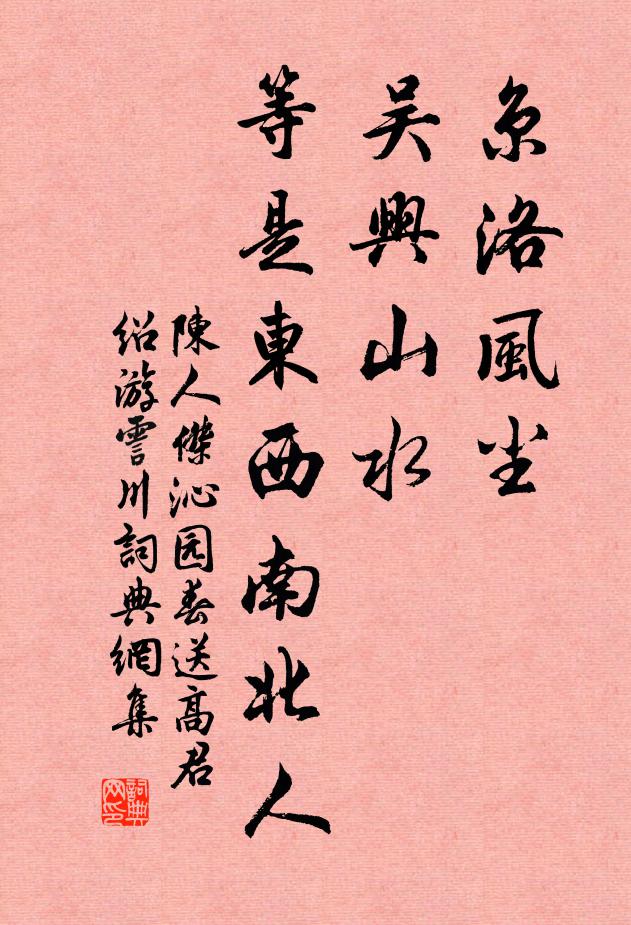 京洛風尘
吴興山水
等是東西南北人
陳人傑沁园春送高君
绍游霅川詞典網集
詞典网印